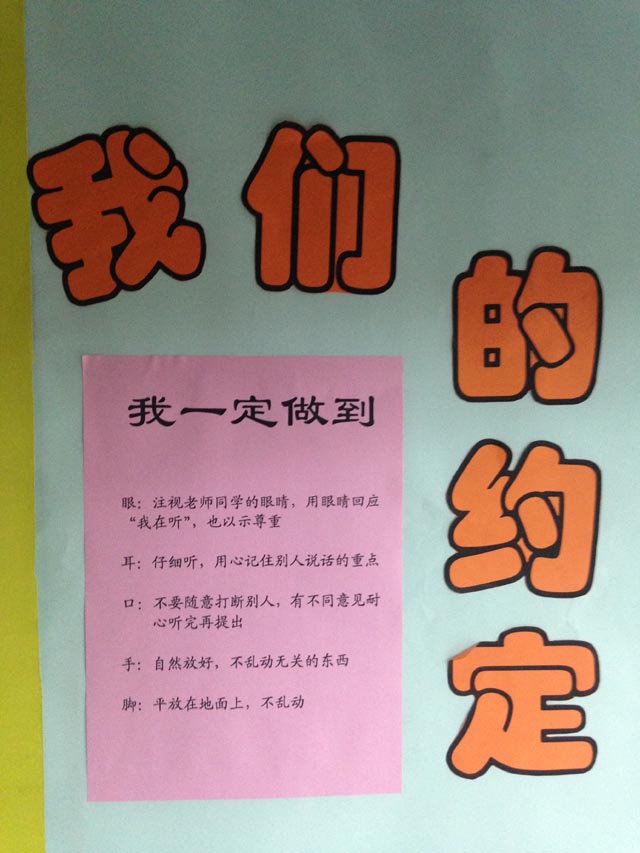 我们的约定
我一定做到
眼：注视老师同学的眼睛，用眼睛回应
“我在听”，也以示尊重
耳：仔细听，用心记住别人说话的重点
口：不要随意打断别人，有不同意见耐
心听完再提出
手：自然放好，不乱动无关的东西
脚：平放在地面上，不乱动